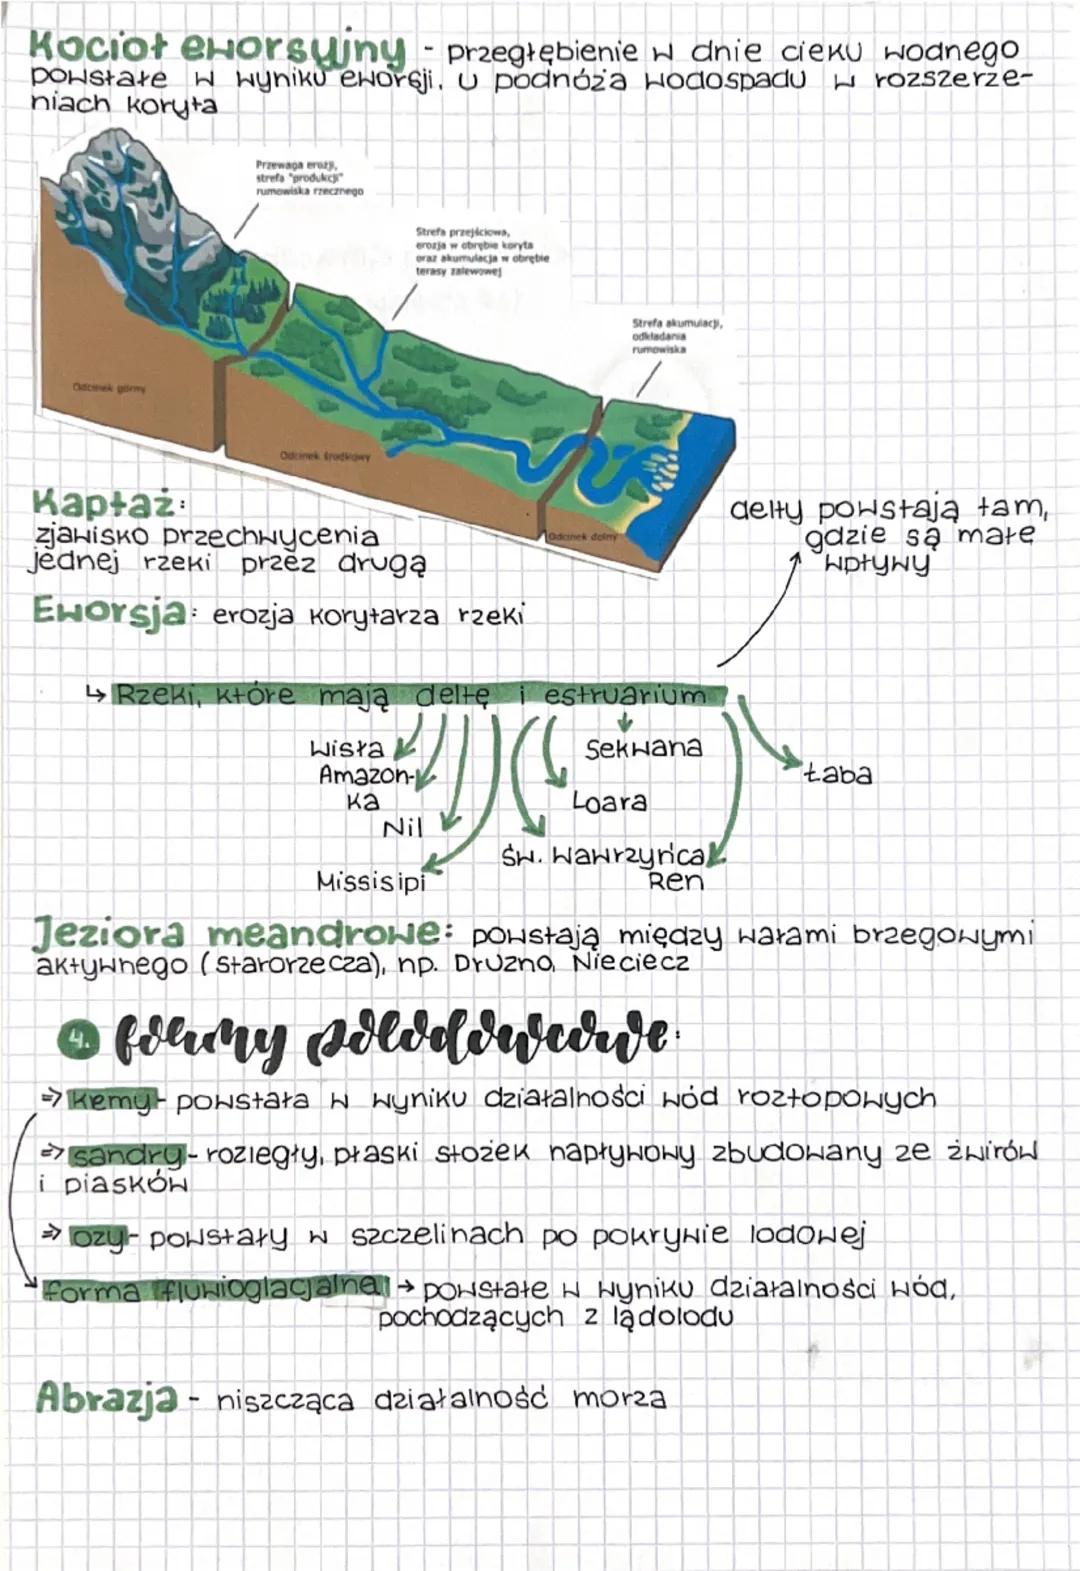 Kocioł eworsyjny - przegłębienie w dnie cieku wodnego
powstałe w wyniku eworsji, u podnóża wodospadu w rozszerze-
niach koryta
Przewaga erozji,
strefa "produkcji"
rumowiska rzecznego
Strefa przejściowa,
erozja w obrębie koryta
oraz akumulacja w obrębie
terasy zalewowej
Strefa akumulacji,
odkładania
rumowiska
Odcinek górny
Odcinek środkowy
Odcinek dolny
Kaptaż:
zjawisko przechwycenia
jednej rzeki przez drugą
delty powstają tam,
gdzie są małe
wpływy
Eworsja: erozja korytarza rzeki
↳ Rzeki, które mają deltę i estruarium
Wisła
Amazon-
ka
Nil
Missisipi
Sekwana
Loara
Św. Wawrzyńca
Ren
Łaba
Jeziora meandrowe: powstają między wałami brzegowymi
aktywnego (starorzecza), np. Druzno, Nieciecz
4. formy polodowcowe:
⇒ kemy - powstała w wyniku działalności wód roztopowych
⇒ sandry - rozległy, płaski stożek napływowy zbudowany ze żwirów
i piasków
⇒ ozy - powstały w szczelinach po pokrywie lodowej
forma fluwioglacjalna → powstałe w wyniku działalności wód,
pochodzących z lądolodu
Abrazja - niszcząca działalność morza